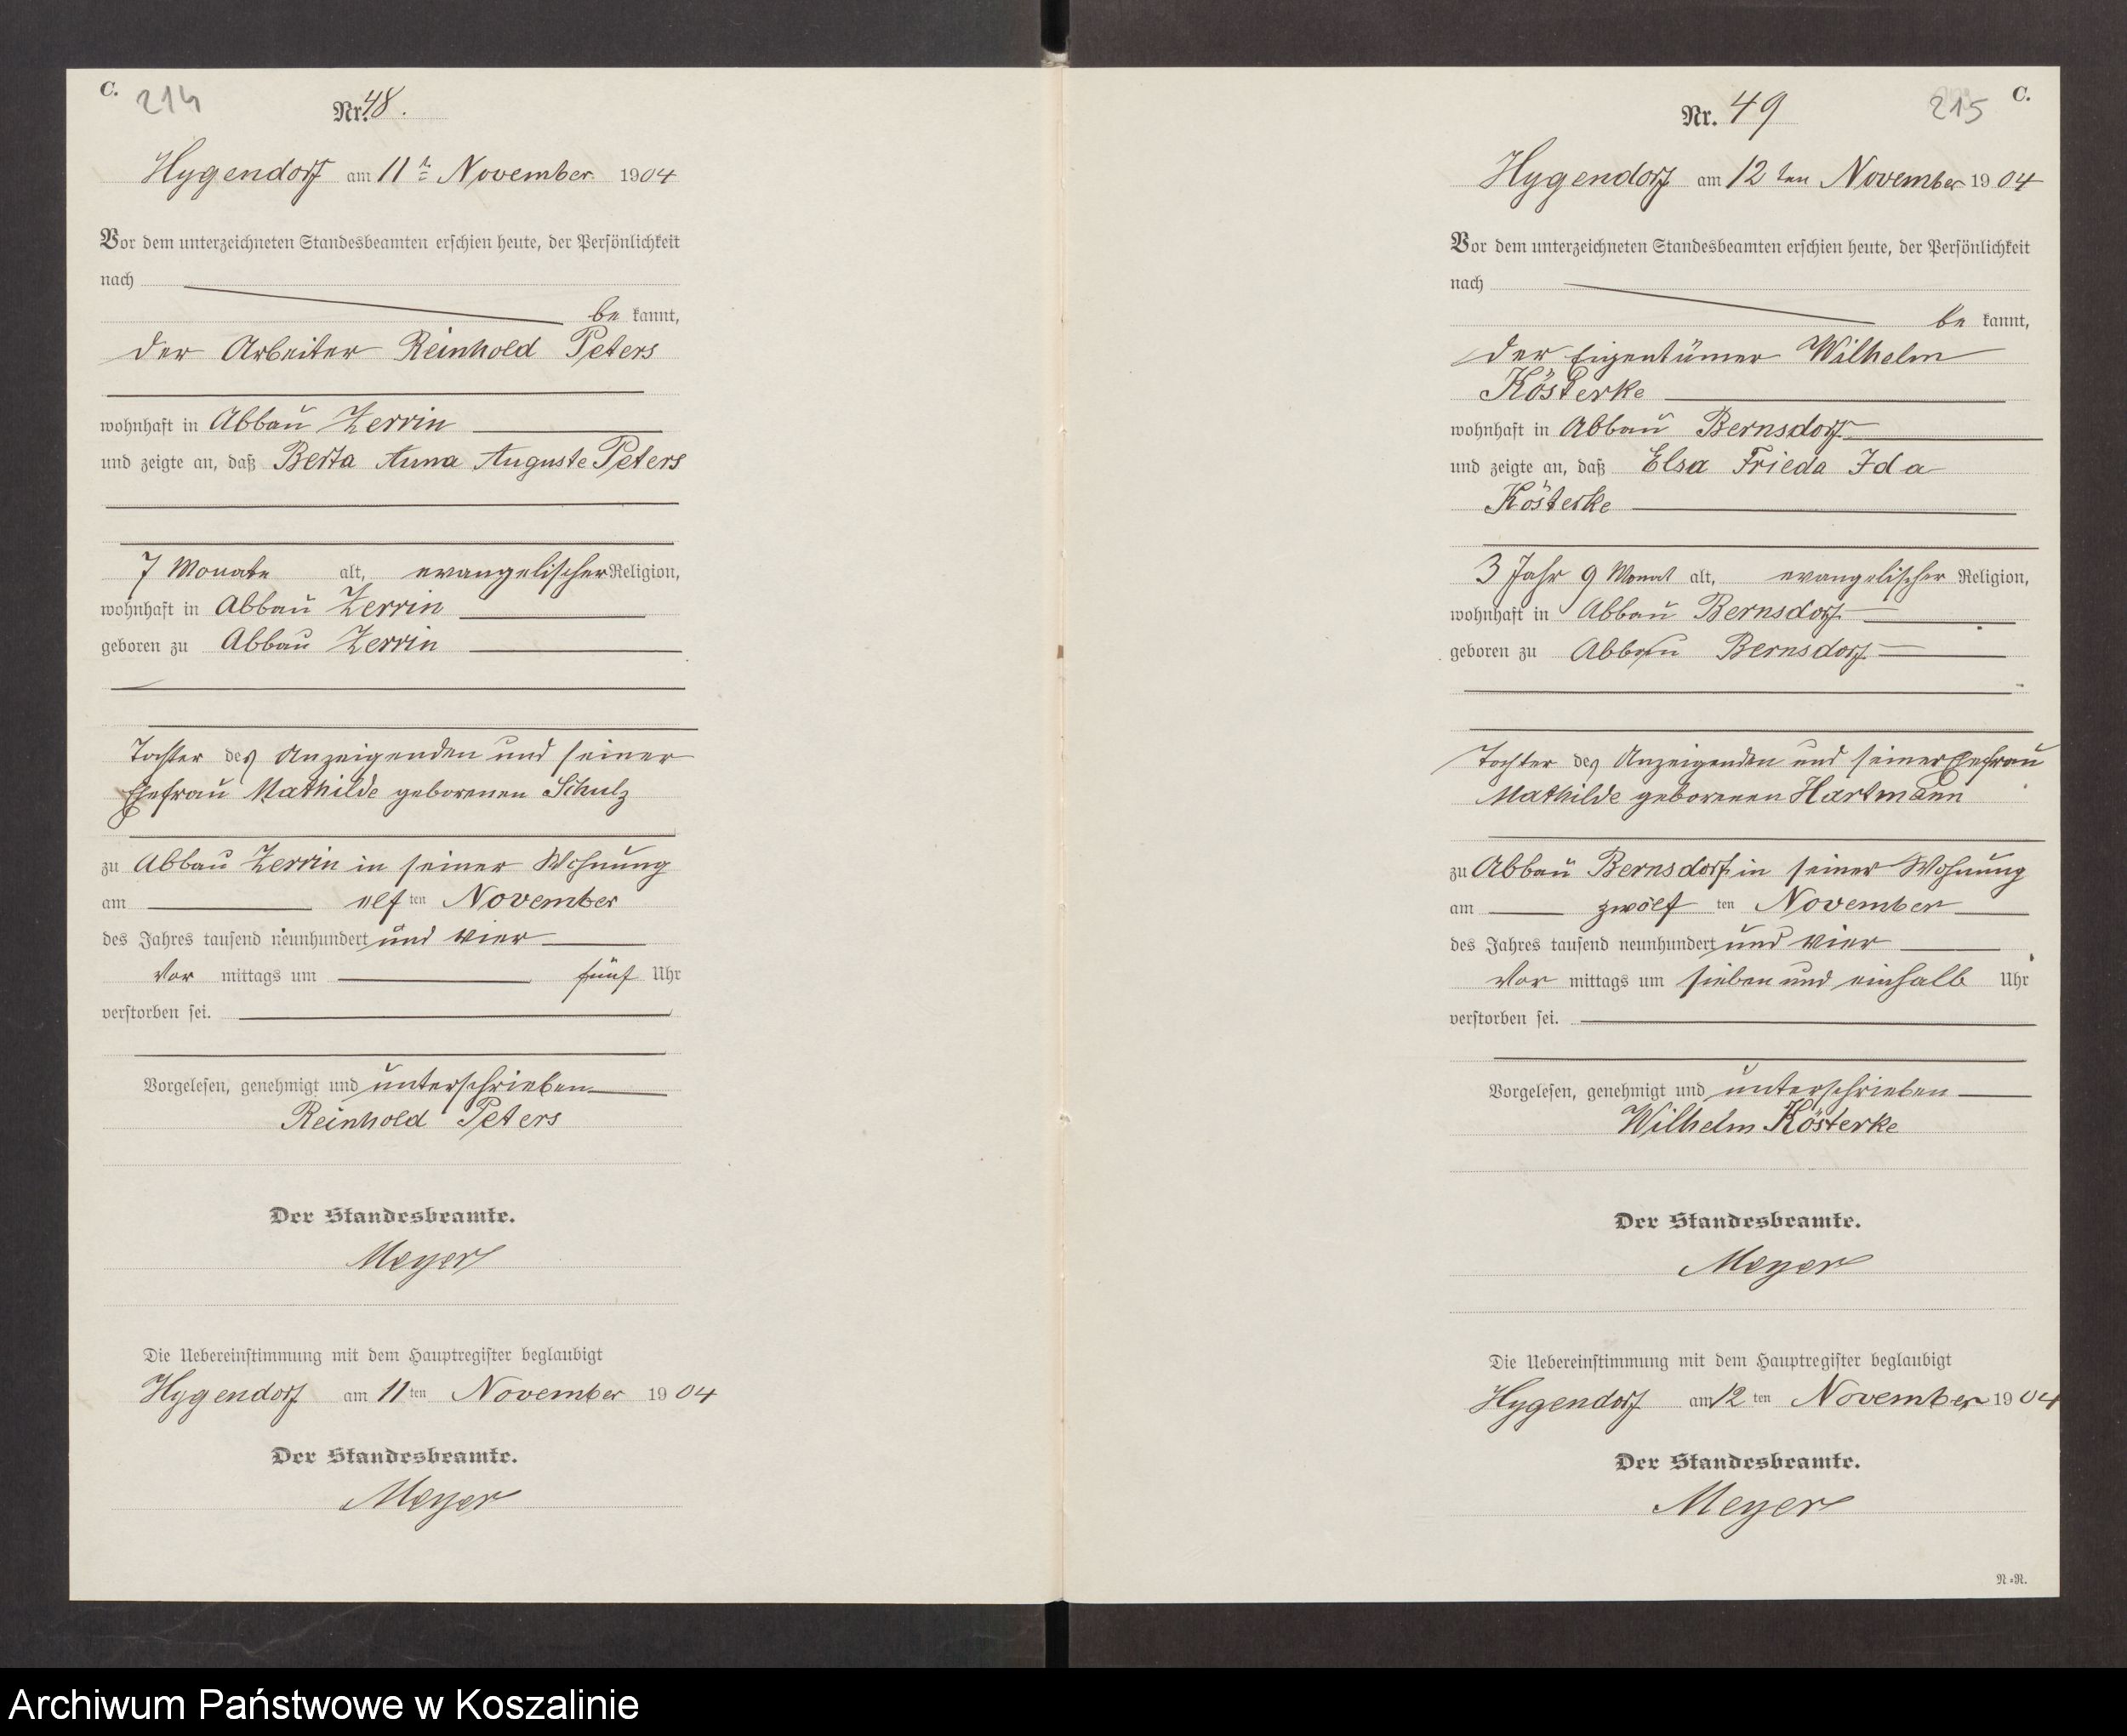 C.
214
Nr. 48.
Hygendorf am 11ten November 1904
Vor dem unterzeichneten Standesbeamten erschien heute, der Persönlichkeit
nach
be kannt,
der Arbeiter Reinhold Peters
wohnhaft in Abbau Zerrin
und zeigte an, daß Berta Anna Auguste Peters
7 Monate alt, evangelischer Religion,
wohnhaft in Abbau Zerrin
geboren zu Abbau Zerrin
Tochter des Anzeigenden und seiner
Ehefrau Mathilde geborenen Schulz
zu Abbau Zerrin in seiner Wohnung
am elf ten November
des Jahres tausend neunhundert und vier
Vor mittags um fünf Uhr
verstorben sei.
Vorgelesen, genehmigt und unterschrieben
Reinhold Peters
Der Standesbeamte.
Meyer
Die Uebereinstimmung mit dem Hauptregister beglaubigt
Hygendorf am 11 ten November 1904
Der Standesbeamte.
Meyer
C.
215
Nr. 49
Hygendorf am 12 ten November 1904
Vor dem unterzeichneten Standesbeamten erschien heute, der Persönlichkeit
nach
be kannt,
der Eigentümer Wilhelm
Kösterke
wohnhaft in Abbau Bernsdorf
und zeigte an, daß Elsa Frieda Ida
Kösterke
3 Jahr 9 Monat alt, evangelischer Religion,
wohnhaft in Abbau Bernsdorf
geboren zu Abbau Bernsdorf
Tochter des Anzeigenden und seiner Ehefrau
Mathilde geborenen Hartmann
zu Abbau Bernsdorf in seiner Wohnung
am zwölf ten November
des Jahres tausend neunhundert und vier
Vor mittags um sieben und einhalb Uhr
verstorben sei.
Vorgelesen, genehmigt und unterschrieben
Wilhelm Kösterke
Der Standesbeamte.
Meyer
Die Uebereinstimmung mit dem Hauptregister beglaubigt
Hygendorf am 12 ten November 1904
Der Standesbeamte.
Meyer
N.-N.
Archiwum Państwowe w Koszalinie